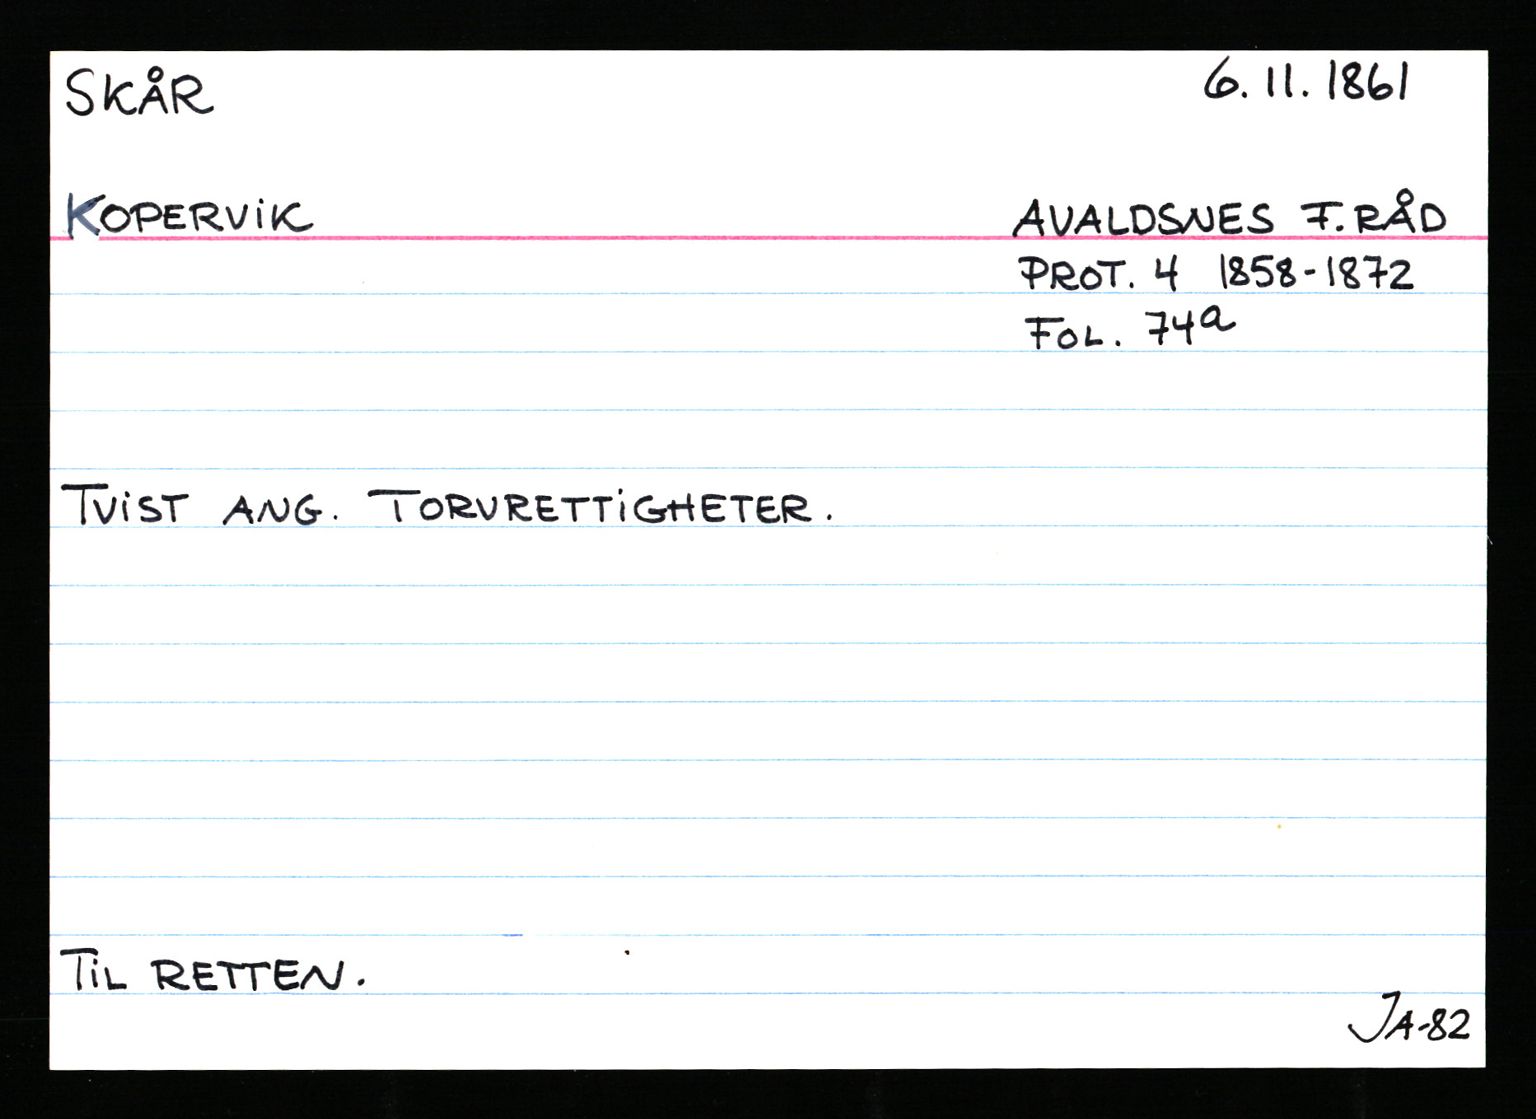 SKÅR
6. 11. 1861
KOPERVIK
AVALDSNES F. RÅD
PROT. 4 1858-1872
FOL. 74a
TVIST ANG. TORVRETTIGHETER.
TIL RETTEN.
JA-82